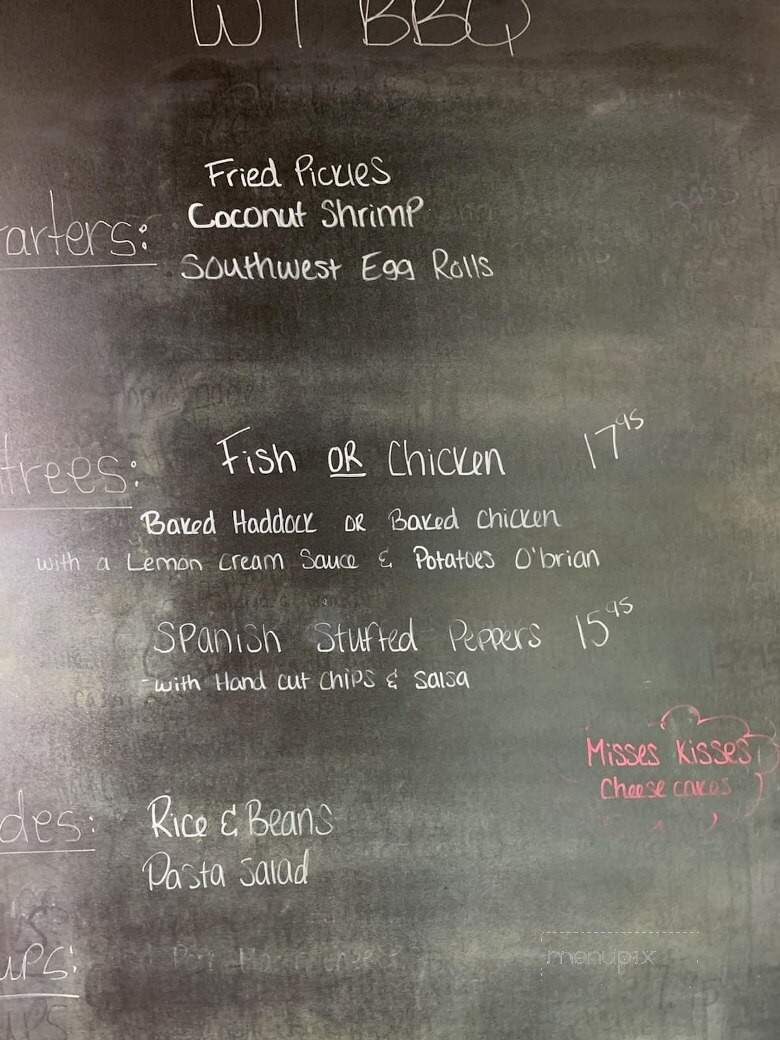 WT BBQ
Fried Pickles
Coconut Shrimp
arters:
Southwest Egg Rolls
trees:
Fish OR Chicken 17⁹⁵
Baked Haddock OR Baked Chicken
with a Lemon Cream Sauce & Potatoes O'brian
Spanish Stuffed Peppers 15⁹⁵
-with Hand cut Chips & Salsa
Misses Kisses
Cheese cakes
des:
Rice & Beans
Pasta Salad
ups:
menupix